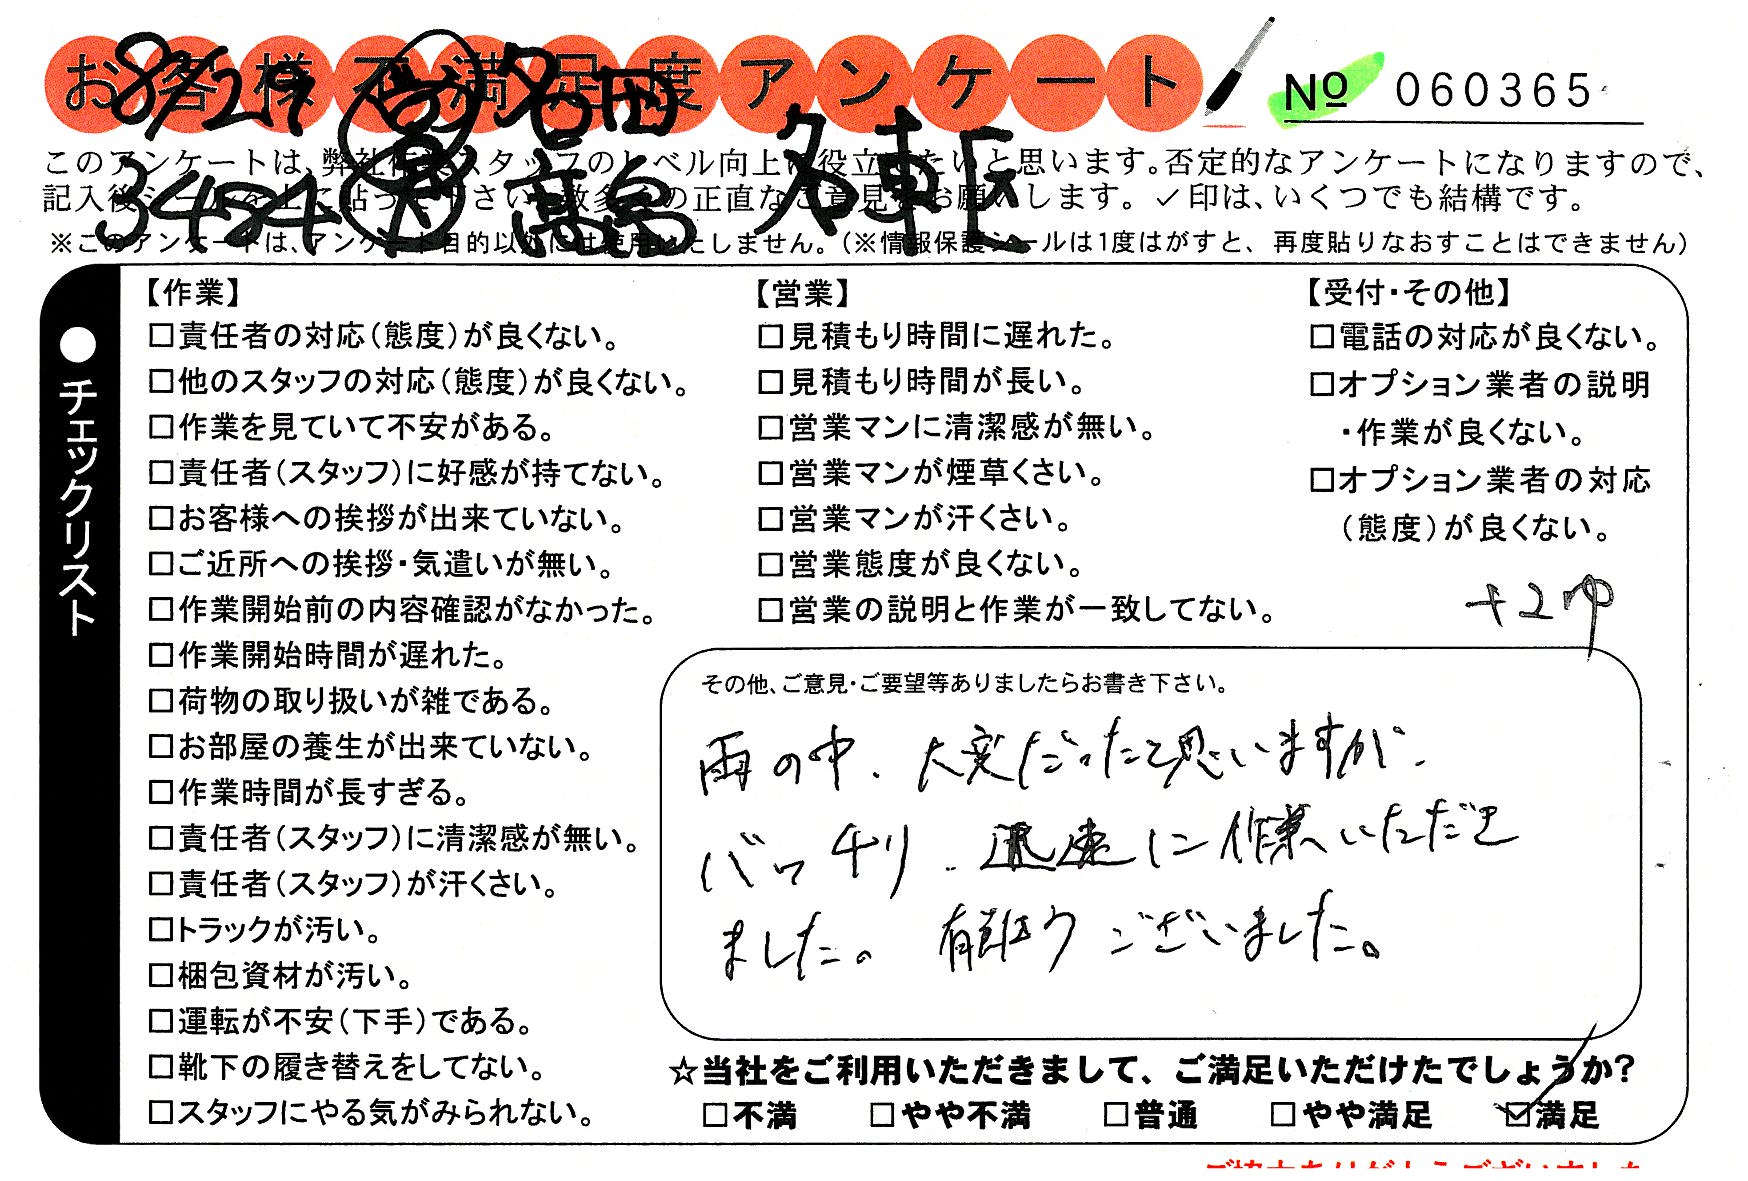 お客様不満足度アンケート
№ 060365
8/29 名田
3484 高島 名車匠
このアンケートは、弊社作業スタッフのレベル向上に役立てたいと思います。否定的なアンケートになりますので、
記入後シールを上に貼って下さい。数多くの正直なご意見をお願いします。✓印は、いくつでも結構です。
※このアンケートは、アンケート目的以外には使用いたしません。(※情報保護シールは1度はがすと、再度貼りなおすことはできません)
●チェックリスト
【作業】
□責任者の対応(態度)が良くない。
□他のスタッフの対応(態度)が良くない。
□作業を見ていて不安がある。
□責任者(スタッフ)に好感が持てない。
□お客様への挨拶が出来ていない。
□ご近所への挨拶・気遣いが無い。
□作業開始前の内容確認がなかった。
□作業開始時間が遅れた。
□荷物の取り扱いが雑である。
□お部屋の養生が出来ていない。
□作業時間が長すぎる。
□責任者(スタッフ)に清潔感が無い。
□責任者(スタッフ)が汗くさい。
□トラックが汚い。
□梱包資材が汚い。
□運転が不安(下手)である。
□靴下の履き替えをしてない。
□スタッフにやる気がみられない。
【営業】
□見積もり時間に遅れた。
□見積もり時間が長い。
□営業マンに清潔感が無い。
□営業マンが煙草くさい。
□営業マンが汗くさい。
□営業態度が良くない。
□営業の説明と作業が一致してない。
【受付・その他】
□電話の対応が良くない。
□オプション業者の説明
・作業が良くない。
□オプション業者の対応
(態度)が良くない。
その他、ご意見・ご要望等ありましたらお書き下さい。
雨の中、大変だったと思いますが、
バッチリ、迅速に作業いただき
ました。有難う ございました。
☆当社をご利用いただきまして、ご満足いただけたでしょうか?
□不満 □やや不満 □普通 □やや満足 ☑満足
ご協力ありがとうございました